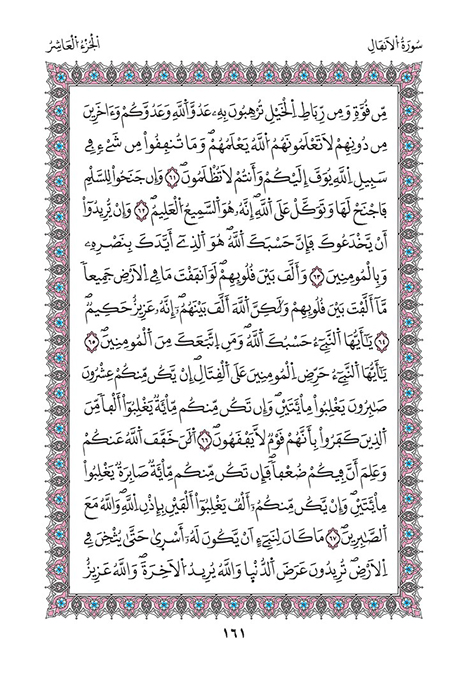 سُورَةُ الْأَنفَالِ
الْجُزْءُ الْعَاشِرُ
مِّن قُوَّةٍ وَمِن رِّبَاطِ اِ۬لْخَيْلِ تُرْهِبُونَ بِهِۦ عَدُوَّ اَ۬للَّهِ وَعَدُوَّكُمْ وَءَاخَرِينَ
مِن دُونِهِمْ لَا تَعْلَمُونَهُمُ اُ۬للَّهُ يَعْلَمُهُمْۖ وَمَا تُنفِقُواْ مِن شَےْءٖ فِے
سَبِيلِ اِ۬للَّهِ يُوَفَّ إِلَيْكُمْ وَأَنتُمْ لَا تُظْلَمُونَۖ ٦١ وَإِن جَنَحُواْ لِلسَّلْمِ
فَاجْنَحْ لَهَا وَتَوَكَّلْ عَلَى اَ۬للَّهِۖ إِنَّهُۥ هُوَ اَ۬لسَّمِيعُ اُ۬لْعَلِيمُۖ ٦٢ وَإِنْ يُّرِيدُوٓاْ
أَنْ يَّخْدَعُوكَ فَإِنَّ حَسْبَكَ اَ۬للَّهُۖ هُوَ اَ۬لذِےٓ أَيَّدَكَ بِنَصْرِهِۦ
وَبِالْمُومِنِينَ ٦٣ وَأَلَّفَ بَيْنَ قُلُوبِهِمْۖ لَوَ اَنفَقْتَ مَا فِے اِ۬لَارْضِ جَمِيعاٗ
مَّآ أَلَّفْتَ بَيْنَ قُلُوبِهِمْ وَلَٰكِنَّ اَ۬للَّهَ أَلَّفَ بَيْنَهُمُۥٓۖ إِنَّهُۥ عَزِيزٌ حَكِيمٞۖ
٦٤ يَٰٓأَيُّهَا اَ۬لنَّبِےٓءُ حَسْبُكَ اَ۬للَّهُ وَمَنِ اِ۪تَّبَعَكَ مِنَ اَ۬لْمُومِنِينَۖ ٦٥
يَٰٓأَيُّهَا اَ۬لنَّبِےٓءُ حَرِّضِ اِ۬لْمُومِنِينَ عَلَى اَ۬لْقِتَالِۖ إِنْ يَّكُن مِّنكُمْ عِشْرُونَ
صَٰبِرُونَ يَغْلِبُواْ مِاْئَتَيْنِۖ وَإِن تَكُن مِّنكُم مِّاْئَةٞ يَغْلِبُوٓاْ أَلْفاٗ مِّنَ
اَ۬لذِينَ كَفَرُواْ بِأَنَّهُمْ قَوْمٞ لَّا يَفْقَهُونَۖ ٦٦ اَ۬لَٰنَ خَفَّفَ اَ۬للَّهُ عَنكُمْ
وَعَلِمَ أَنَّ فِيكُمْ ضُعْفاٗۖ فَإِن تَكُن مِّنكُم مِّاْئَةٞ صَابِرَةٞ يَغْلِبُواْ
مِاْئَتَيْنِۖ وَإِنْ يَّكُن مِّنكُمُۥٓ أَلْفٞ يَغْلِبُوٓاْ أَلْفَيْنِ بِإِذْنِ اِ۬للَّهِۖ وَاللَّهُ مَعَ
اَ۬لصَّٰبِرِينَۖ ٦٧ مَا كَانَ لِنَبِےٓءٍ اَنْ يَّكُونَ لَهُۥٓ أَسْر۪يٰ حَتَّيٰ يُثْخِنَ فِے
اِ۬لَارْضِۖ تُرِيدُونَ عَرَضَ اَ۬لدُّنْي۪ا وَاللَّهُ يُرِيدُ اُ۬لَاخِرَةَۖ وَاللَّهُ عَزِيزٌ
١٦١